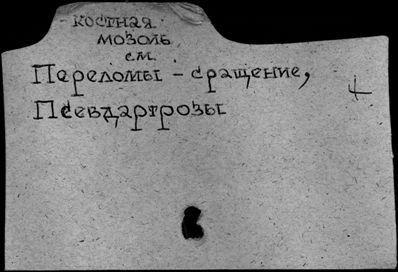 костная
мозоль
см.
Переломы - сращение,
Псевдартрозы